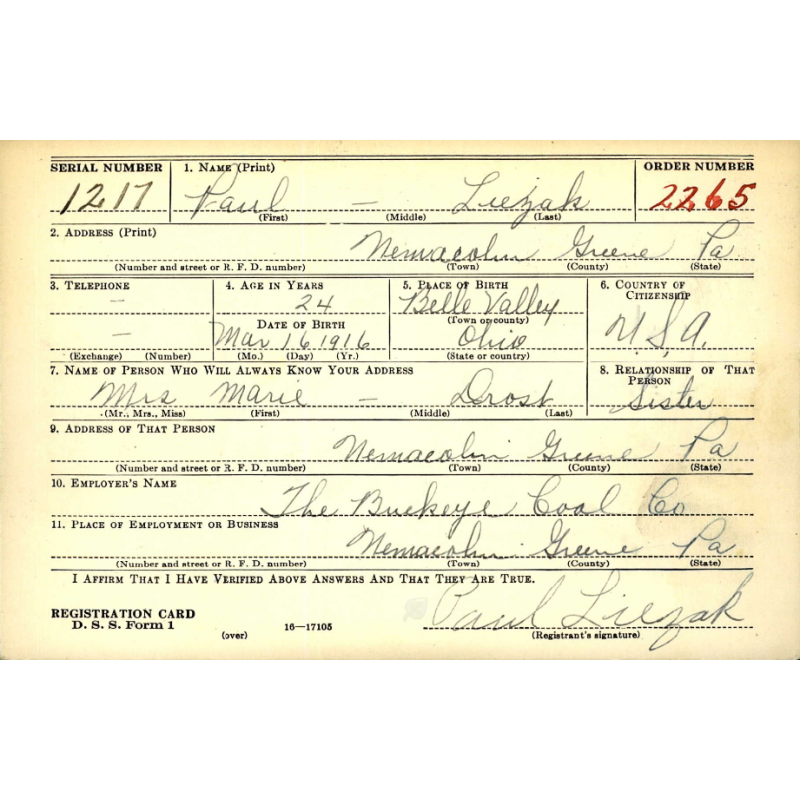 SERIAL NUMBER 1. NAME (Print) ORDER NUMBER
1217 Paul — Liezak 2265
(First) (Middle) (Last)
2. ADDRESS (Print)
Nemacolin Greene Pa
(Number and street or R. F. D. number) (Town) (County) (State)
3. TELEPHONE 4. AGE IN YEARS 5. PLACE OF BIRTH 6. COUNTRY OF CITIZENSHIP
— 24 Belle Valley
DATE OF BIRTH (Town or county)
— Mar 16 1916 Ohio U.S.A.
(Exchange) (Number) (Mo.) (Day) (Yr.) (State or country)
7. NAME OF PERSON WHO WILL ALWAYS KNOW YOUR ADDRESS 8. RELATIONSHIP OF THAT PERSON
Mrs Marie — Drost Sister
(Mr., Mrs., Miss) (First) (Middle) (Last)
9. ADDRESS OF THAT PERSON
Nemacolin Greene Pa
(Number and street or R. F. D. number) (Town) (County) (State)
10. EMPLOYER'S NAME
The Buckeye Coal Co
11. PLACE OF EMPLOYMENT OR BUSINESS
Nemacolin Greene Pa
(Number and street or R. F. D. number) (Town) (County) (State)
I AFFIRM THAT I HAVE VERIFIED ABOVE ANSWERS AND THAT THEY ARE TRUE.
REGISTRATION CARD
D. S. S. Form 1 Paul Liezak
(over) 16—17105 (Registrant's signature)